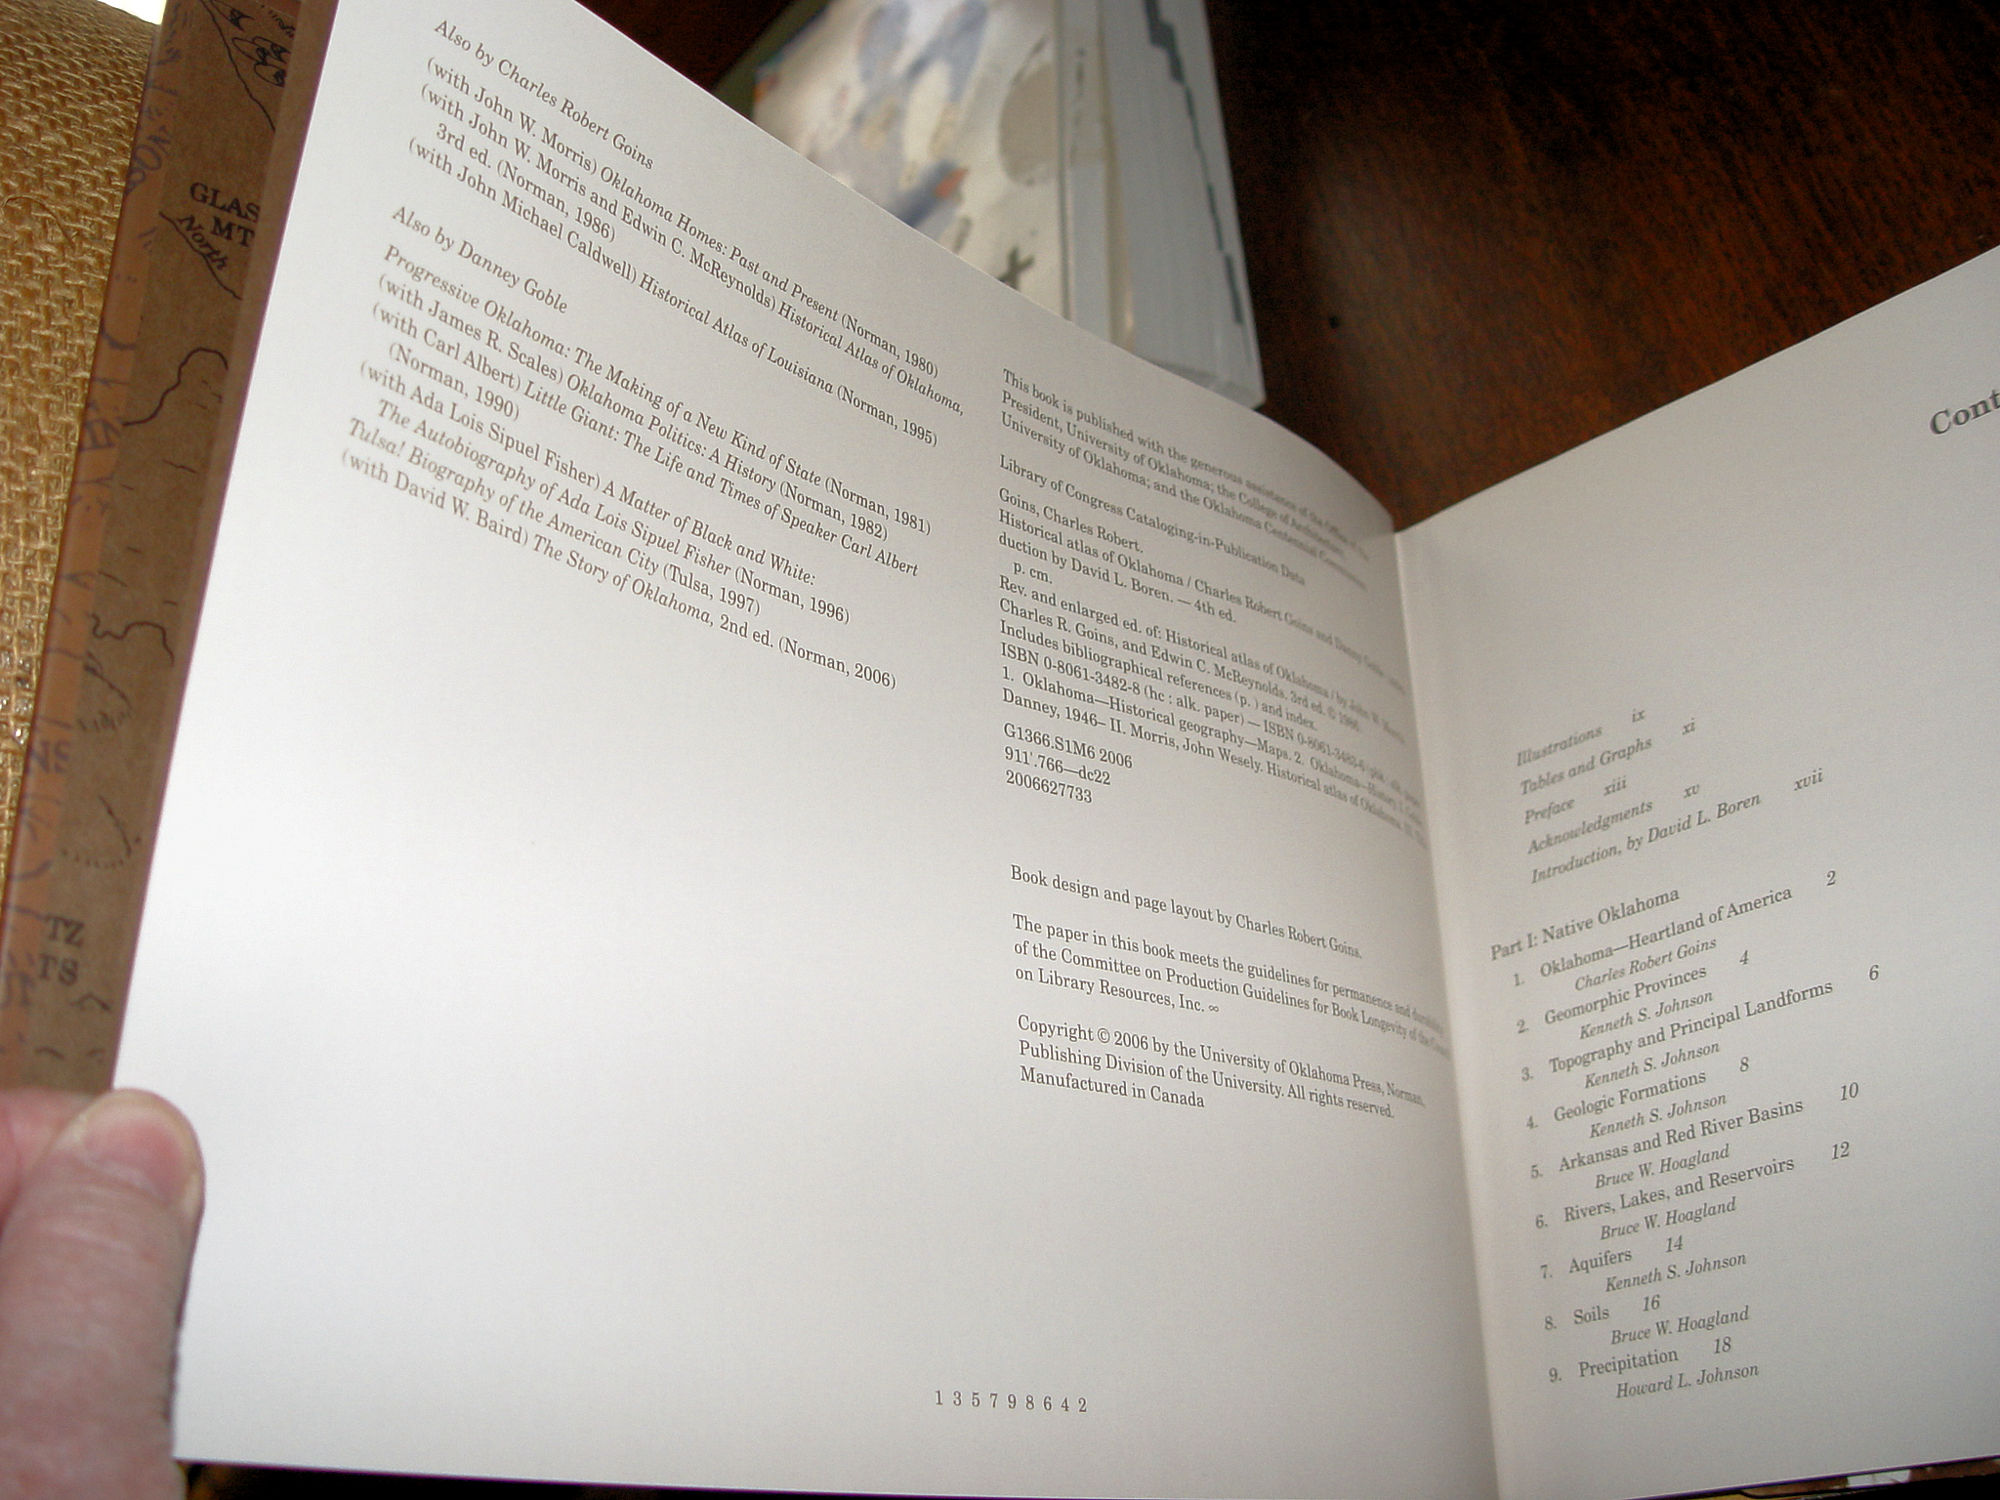 GLAS
MT
North
TZ
TS
Also by Charles Robert Goins
(with John W. Morris) Oklahoma Homes: Past and Present (Norman, 1980)
(with John W. Morris and Edwin C. McReynolds) Historical Atlas of Oklahoma,
3rd ed. (Norman, 1986)
(with John Michael Caldwell) Historical Atlas of Louisiana (Norman, 1995)
Also by Danney Goble
Progressive Oklahoma: The Making of a New Kind of State (Norman, 1981)
(with James R. Scales) Oklahoma Politics: A History (Norman, 1982)
(with Carl Albert) Little Giant: The Life and Times of Speaker Carl Albert
(Norman, 1990)
(with Ada Lois Sipuel Fisher) A Matter of Black and White:
The Autobiography of Ada Lois Sipuel Fisher (Norman, 1996)
Tulsa! Biography of the American City (Tulsa, 1997)
(with David W. Baird) The Story of Oklahoma, 2nd ed. (Norman, 2006)
This book is published with the generous assistance of the Office of the
President, University of Oklahoma; the College of Architecture,
University of Oklahoma; and the Oklahoma Centennial Commission
Library of Congress Cataloging-in-Publication Data
Goins, Charles Robert.
Historical atlas of Oklahoma / Charles Robert Goins and Danney Goble
duction by David L. Boren. — 4th ed.
p. cm.
Rev. and enlarged ed. of: Historical atlas of Oklahoma / by John W. Morris,
Charles R. Goins, and Edwin C. McReynolds. 3rd ed. © 1986.
Includes bibliographical references (p. ) and index.
ISBN 0-8061-3482-8 (hc : alk. paper) — ISBN 0-8061-3483-6
1. Oklahoma—Historical geography—Maps. 2. Oklahoma—History.
Danney, 1946– II. Morris, John Wesley. Historical atlas of Oklahoma.
G1366.S1M6 2006
911'.766—dc22
2006627733
Book design and page layout by Charles Robert Goins.
The paper in this book meets the guidelines for permanence and durability
of the Committee on Production Guidelines for Book Longevity of the
on Library Resources, Inc. ∞
Copyright © 2006 by the University of Oklahoma Press, Norman,
Publishing Division of the University. All rights reserved.
Manufactured in Canada
1 3 5 7 9 8 6 4 2
Cont
Illustrations ix
Tables and Graphs xi
Preface xiii
Acknowledgments xv
Introduction, by David L. Boren xvii
Part I: Native Oklahoma
1. Oklahoma—Heartland of America 2
Charles Robert Goins
2. Geomorphic Provinces 4
Kenneth S. Johnson
3. Topography and Principal Landforms 6
Kenneth S. Johnson
4. Geologic Formations 8
Kenneth S. Johnson
5. Arkansas and Red River Basins 10
Bruce W. Hoagland
6. Rivers, Lakes, and Reservoirs 12
Bruce W. Hoagland
7. Aquifers 14
Kenneth S. Johnson
8. Soils 16
Bruce W. Hoagland
9. Precipitation 18
Howard L. Johnson